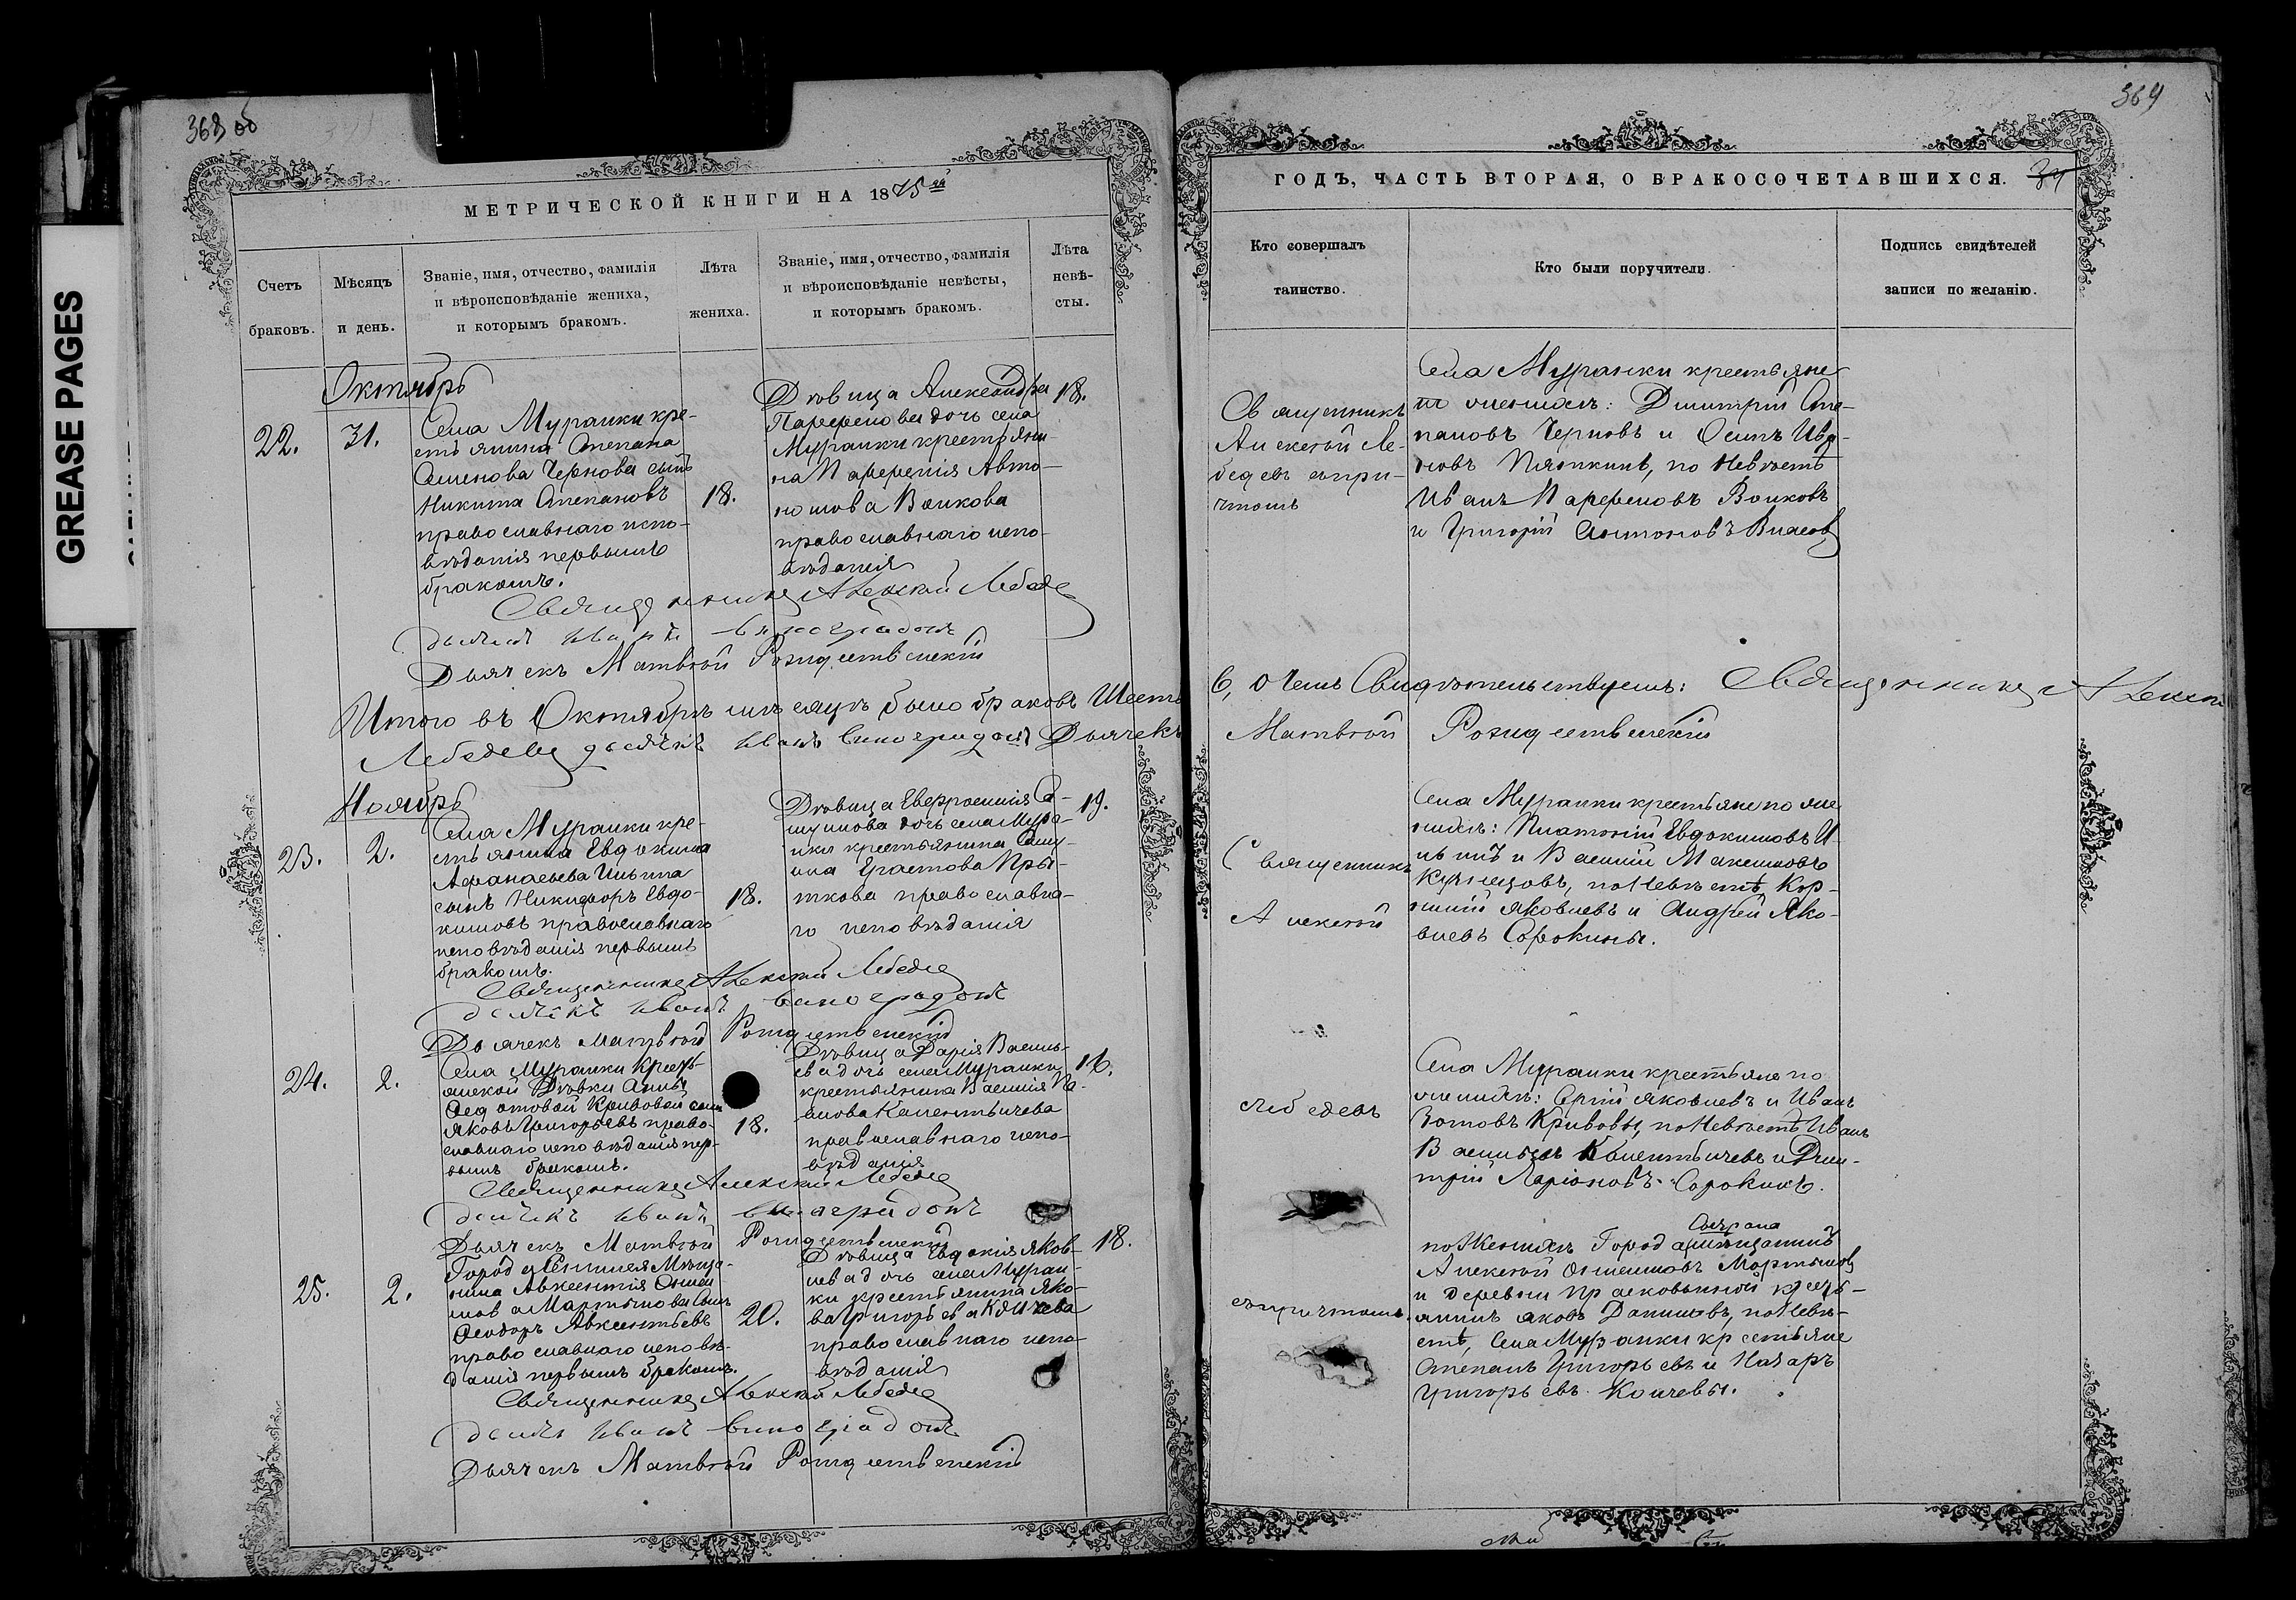 GREASE PAGES
363 об
МЕТРИЧЕСКОЙ КНИГИ НА 1875й
Счетъ браковъ.
Мѣсяцъ и день.
Званіе, имя, отчество, фамилія
и вѣроисповѣданіе жениха,
и которымъ бракомъ.
Лѣта
жениха.
Званіе, имя, отчество, фамилія
и вѣроисповѣданіе невѣсты,
и которымъ бракомъ.
Лѣта
невѣ-
сты.
Октябрь
22.
31.
Села Муранки кре-
стьянина Степана
Семенова Чернова сынъ
Никита Степановъ
православнаго испо-
вѣданія первымъ
бракомъ.
18.
Дѣвица Александра
Парфенова дочь села
Муранки крестьяни-
на Парфенія Авто-
номова Волкова
православнаго испо-
вѣданія
18.
Священникъ Алексій Лебеде
дьячекъ Иванъ Виноградовъ
Дьячекъ Матвѣй Рождественскій
Итого въ Октябрѣ мѣсяцѣ было браковъ Шесть
Лебедевъ дьячекъ Иванъ Виноградовъ Дьячекъ
Ноябрь
23.
2.
Села Муранки кре-
стьянина Евдокима
Афанасьева Ильина
сынъ Никифоръ Евдо-
кимовъ православнаго
исповѣданія первымъ
бракомъ.
18.
Дѣвица Евфросинія Са-
муилова дочь села Мура-
нки крестьянина Саму-
ила Ерастова Пры-
ткова православна-
го исповѣданія
19.
Священникъ Алексій Лебеде
дьячекъ Иванъ Виноградовъ
Дьячекъ Матвѣй Рождественскій
24.
2.
Села Муранки Кресть-
янской Дѣвки Анны
Федотовой Кривовой сынъ
Яковъ Григорьевъ право-
славнаго исповѣданія пер-
вымъ бракомъ.
18.
Дѣвица Дарія Василь-
ева дочь села Муранки
крестьянина Василія
православнаго испо-
вѣданія
16.
Священникъ Алексій Лебеде
дьячекъ Иванъ Виноградовъ
Дьячекъ Матвѣй Рождественскій
25.
2.
Города Сенгилея Мѣща-
нина Авксентія
Мартынова Сынъ
Феодоръ Авксентьевъ
православнаго исповѣ-
данія первымъ бракомъ.
20.
Дѣвица Евдокія Яков-
лева дочь села Муран-
ки крестьянина Яко-
ва Григорьева Кличева
православнаго испо-
вѣданія
18.
Священникъ Алексій Лебеде
дьячекъ Иванъ Виноградовъ
Дьячекъ Матвѣй Рождественскій
364
ГОДЪ, ЧАСТЬ ВТОРАЯ, О БРАКОСОЧЕТАВШИХСЯ.
34
Кто совершалъ
таинство.
Кто были поручители.
Подпись свидѣтелей
записи по желанію.
Священникъ
Алексѣй Ле-
бедевъ съ при-
чтомъ
Села Муранки крестьяне
по женихѣ: Дмитрій Сте-
пановъ Черновъ и Осипъ Ива-
новъ Пяткинъ, по Невѣстѣ
Иванъ Парфеновъ Волковъ
и Григорій Антоновъ Власовъ
6, о чемъ Свидѣтельствуемъ: Священникъ Алексѣй
Матвѣй Рождественскій
Священникъ
Алексѣй
Лебедевъ
съ причтомъ.
Села Муранки крестьяне по же-
нихѣ: Платонъ Евдокимовъ И-
льинъ и Василій Максимовъ
Кузнецовъ, по Невѣстѣ, Кор-
нилій Яковлевъ и Андрей Яко-
влевъ Сорокины.
Села Муранки крестьяне по
женихѣ: Сергій Яковлевъ и Иванъ
Зотовъ Кривовы, по Невѣстѣ Иванъ
Васильевъ и Дми-
трій Ларіоновъ Сорокинъ.
Сызрана
по Женихѣ Города мѣщанинъ
Алексѣй Мартыновъ
и деревни кресть-
янинъ Яковъ Даниловъ, по Невѣ-
стѣ, Села Муранки крестьяне
Степанъ Григорьевъ и Назаръ
Григорьевъ Кличевы.